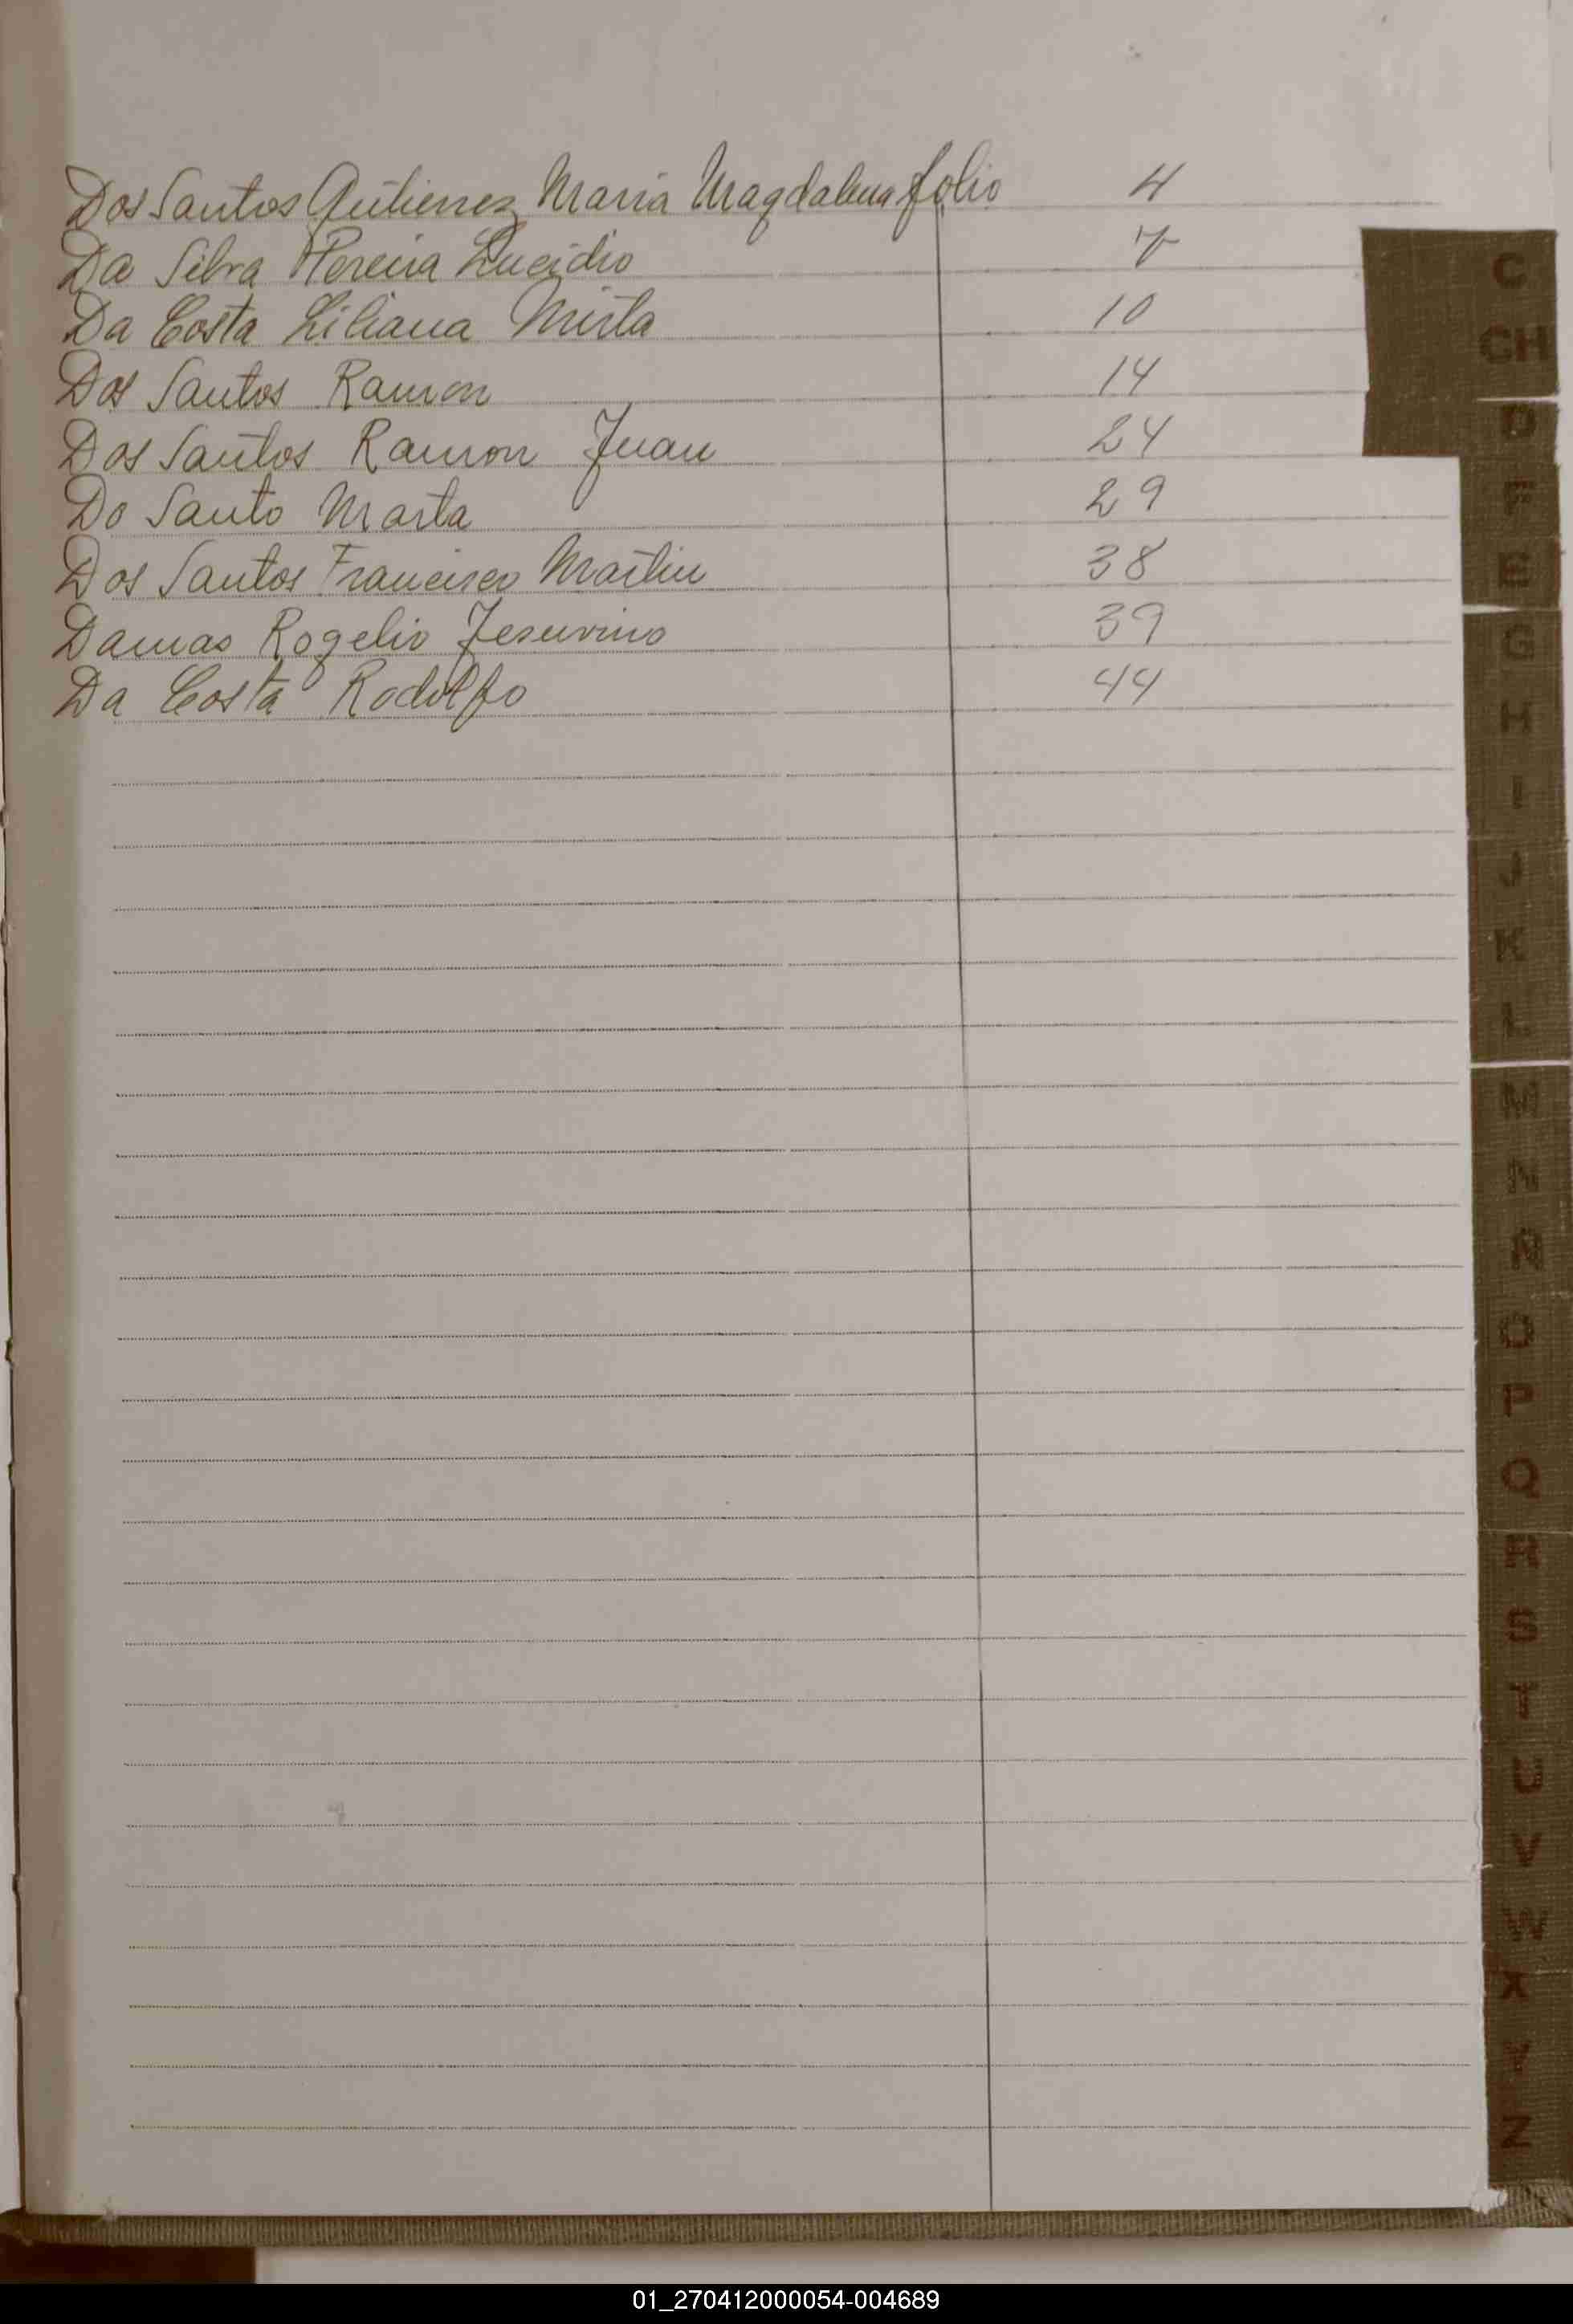 Dos Santos Gutierrez Maria Magdalena folio 4
Da Silva Pereira Lucidio 7
Da Costa Liliana Mirta 10
Dos Santos Ramon 14
Dos Santos Ramon Juan 24
Do Santo Marta 29
Dos Santos Francisco Martin 38
Damas Rogelio Jesuvino 39
Da Costa Rodolfo 44
C
CH
D
F
E
G
H
I
J
K
L
M
N
Ñ
O
P
Q
R
S
T
U
V
W
X
Y
Z
01_270412000054-004689